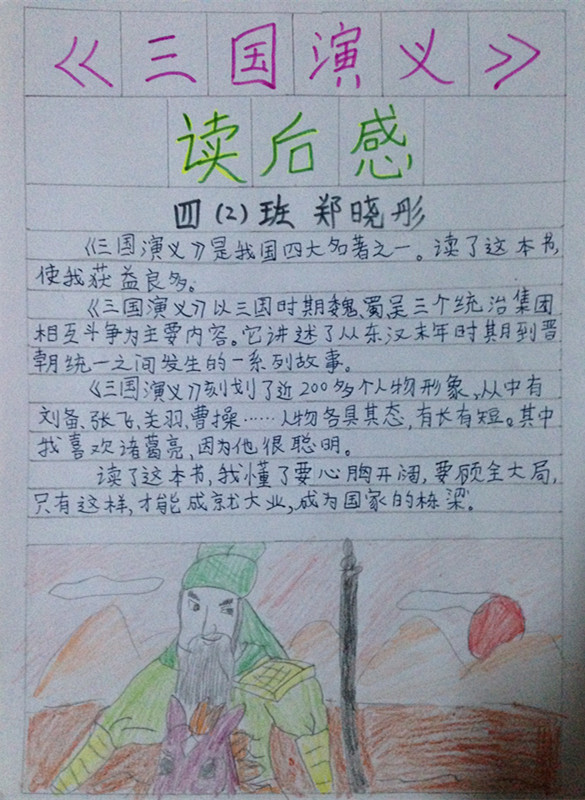 《三国演义》
读后感
四(2)班 郑晓彤
《三国演义》是我国四大名著之一。读了这本书,
使我获益良多。
《三国演义》以三国时期魏、蜀、吴三个统治集团
相互斗争为主要内容。它讲述了从东汉末年时期到晋
朝统一之间发生的一系列故事。
《三国演义》刻划了近200多个人物形象,从中有
刘备、张飞、关羽、曹操……人物各具其态,有长有短。其中
我喜欢诸葛亮,因为他很聪明。
读了这本书,我懂了要心胸开阔,要顾全大局,
只有这样,才能成就大业,成为国家的栋梁。